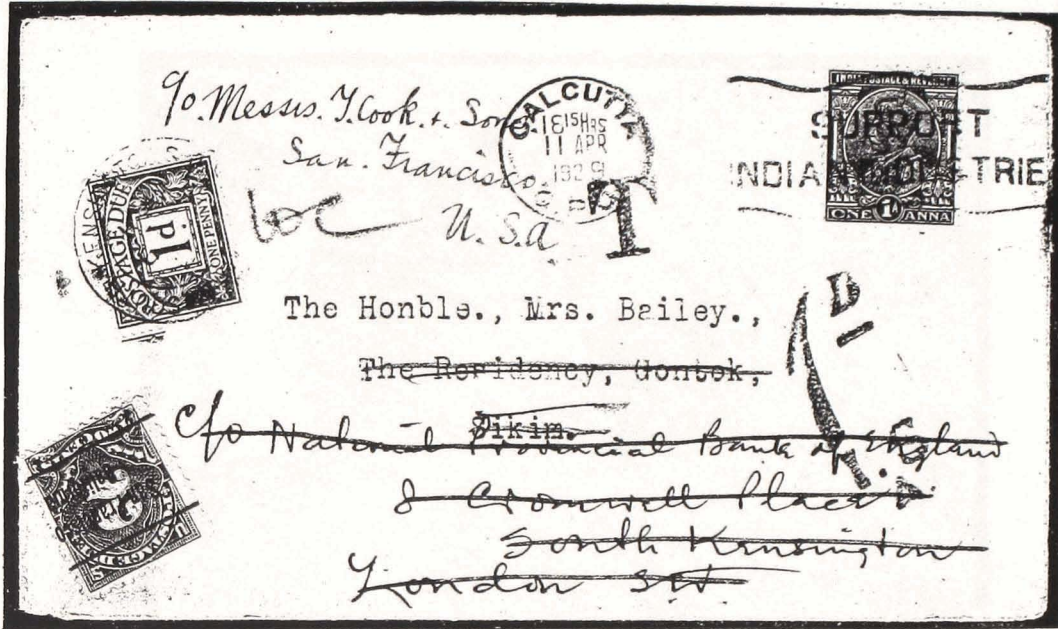 c/o. Messrs. T. Cook. & Son
San. Francisco.
U. S. a
CALCUTTA
18 15 HRS
11 APR
1929
T
INDIA POSTAGE & REVENUE
ONE 1A ANNA
SUPPORT
INDIAN INDUSTRIE
KENSI
POSTAGE DUE
1d
ONE PENNY
1D/
The Honble., Mrs. Bailey.,
The Residency, Gontok,
Sikim.
c/o National Provincial Bank of England
8 Cromwell Place
South Kensington
London S.W.